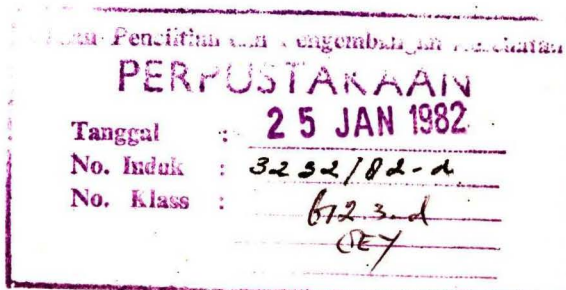 Penelitian dan Pengembangan Kesehatan
PERPUSTAKAAN
Tanggal : 25 JAN 1982
No. Induk : 3232/82-d
No. Klass : 612.3-d
SEY